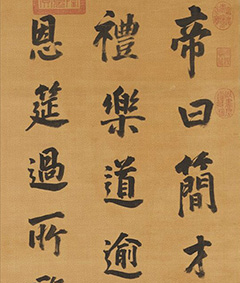 帝曰簡才
禮樂道逾
恩筵過所